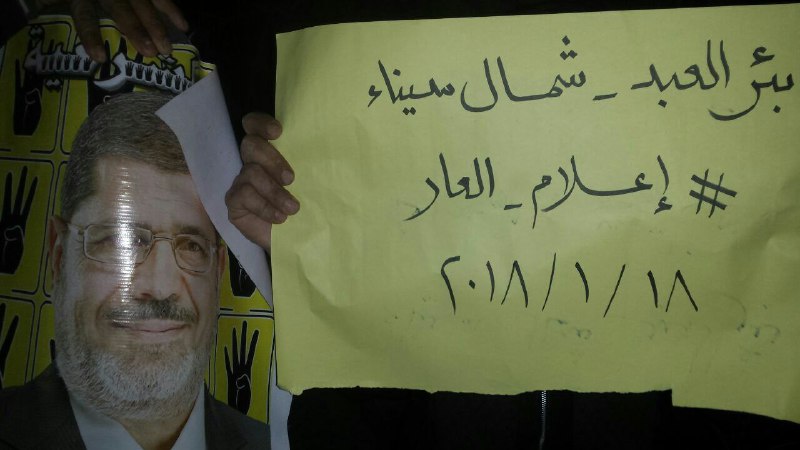 بئر العبد - شمال سيناء
# إعلام - العار
٢٠١٨/١/١٨